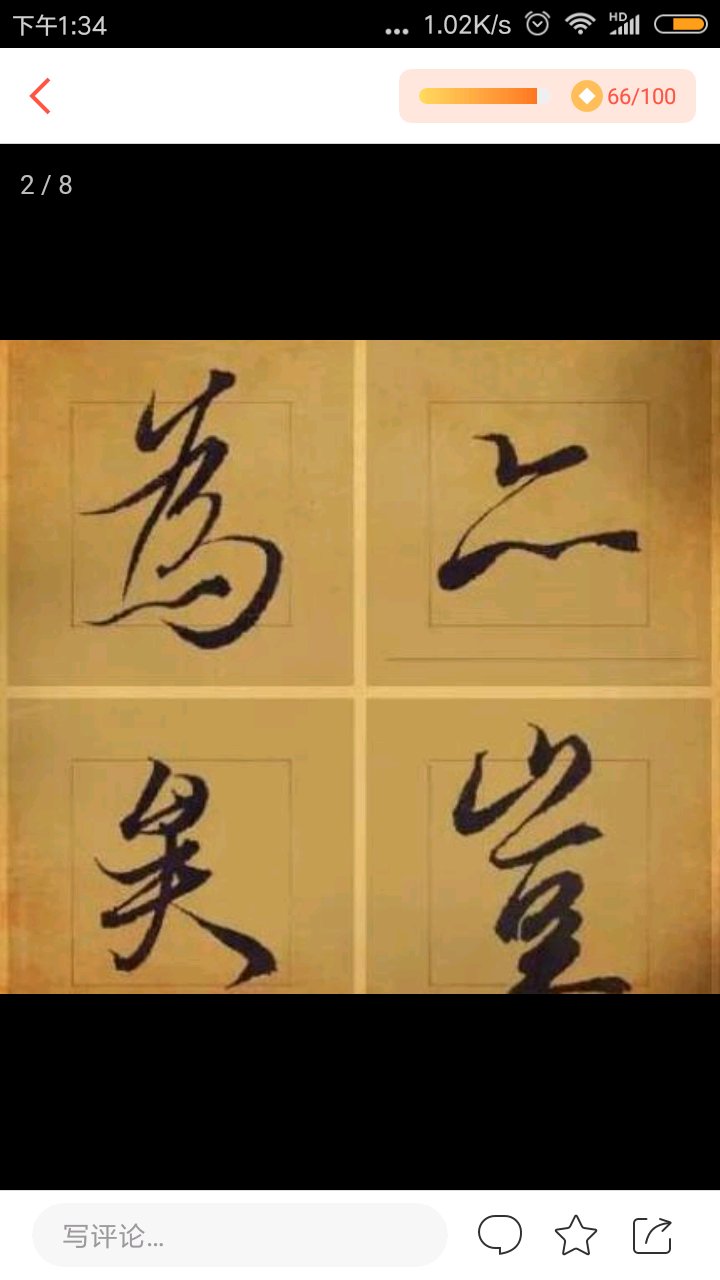 下午1:34 ... 1.02K/s HD
66/100
2 / 8
為 亦
矣 豈
写评论...